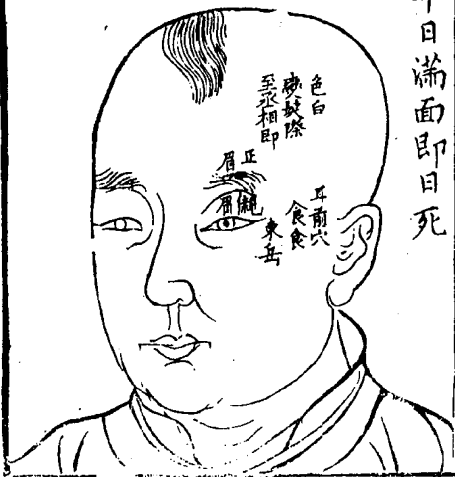 日滿面即日死
色白
變髮際
至丞相即
正
眉
眉
耳前穴
食食
東岳